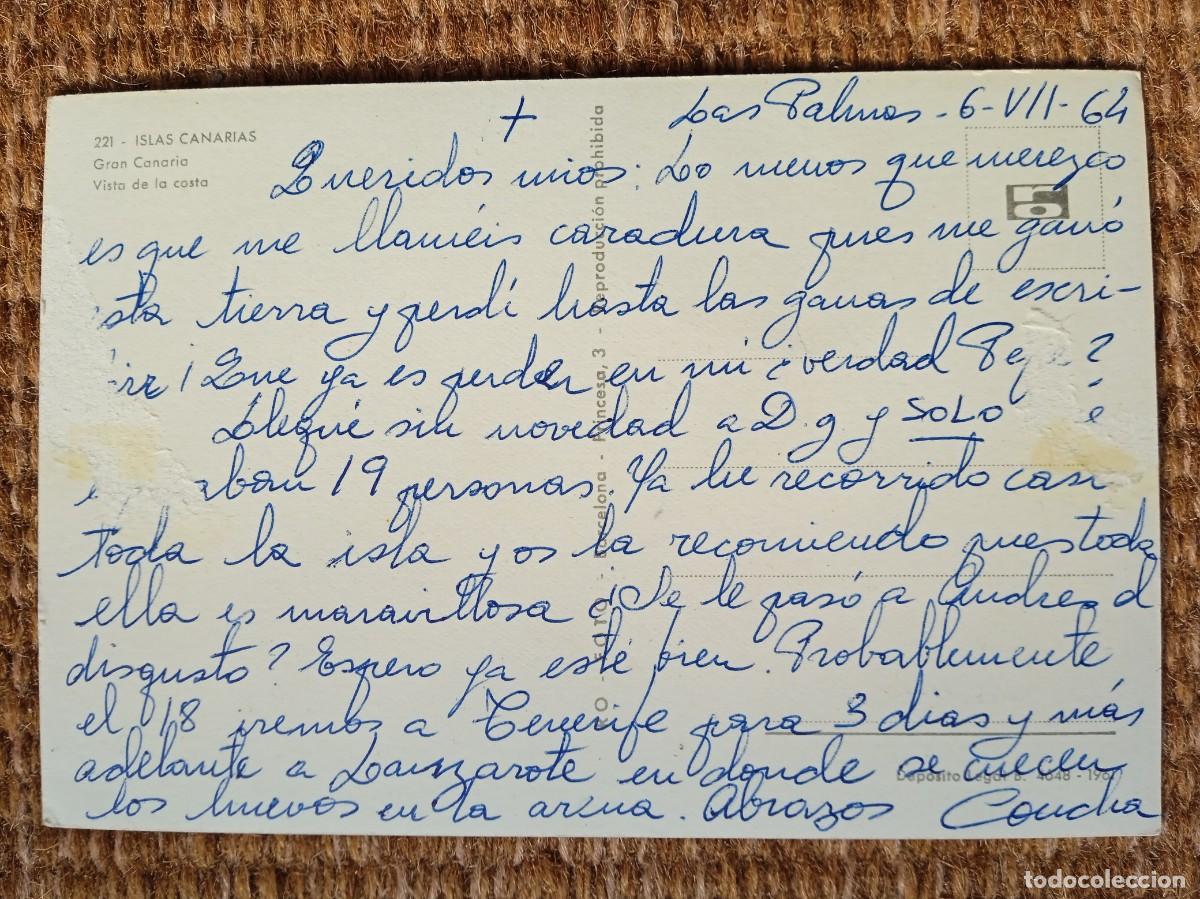 221 - ISLAS CANARIAS
Gran Canaria
Vista de la costa
+
Las Palmas - 6-VII-64
Queridos mios: Lo menos que merezco
es que me llaméis caradura pues me ganó
sta tierra y perdí hasta las ganas de escri-
¡Que ya es perder en mi ¿verdad Pepe?
Llegué sin novedad a D. g y SOLO
aban 19 personas. Ya he recorrido casi
toda la isla y os la recomiendo pues toda
ella es maravillosa ¿Se le pasó a Andrea el
disgusto? Espero ya esté bien. Probablemente
el 18 iremos a Tenerife para 3 dias y más
adelante a Lanzarote en donde se cuecen
los huevos en la arena. Abrazos Concha
FOTO - Barcelona - Princesa, 3 - Reproducción prohibida
Depósito Legal B. 4648 - 196
todocoleccion